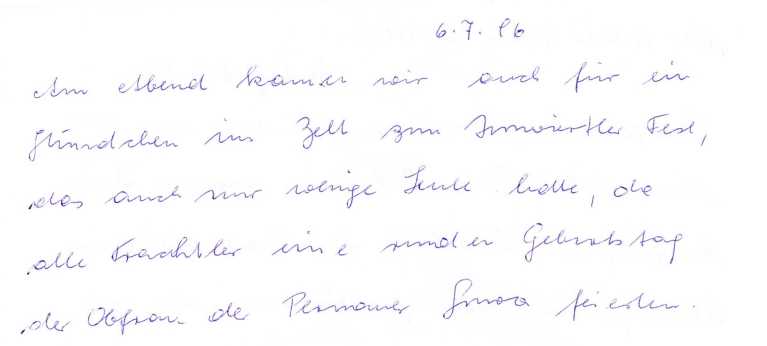 6.7.96
Am Abend kamen wir auch für ein
Stündchen ins Zelt zum Innviertler Fest,
das auch nur wenige Leute hatte, da
alle Trachtler eine runden Geburtstag
der Obfrau der feierten.